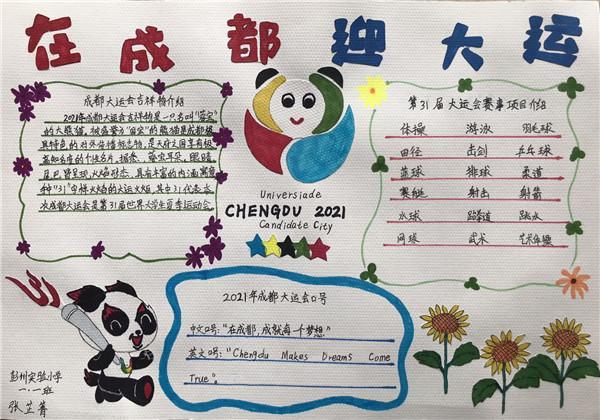 在成都迎大运
成都大运会吉祥物介绍
2021年成都大运会吉祥物是一只名叫“蓉宝”
的大熊猫，被盛誉为“国宝”的熊猫是成都极
具特色的对外传播标志物，是天府之国享有极
高知名度的个性名片，据悉，蓉宝耳朵、眼睛
尾巴皆呈现火焰形态，具有丰富的内涵寓意
手持“31”字样火焰的大运火炬，其中31代表本
次成都大运会是第31届世界大学生夏季运动会
Universiade
CHENGDU 2021
Candidate City
第31届大运会赛事项目介绍
体操 游泳 羽毛球
田径 击剑 乒乓球
篮球 排球 柔道
赛艇 射击 射箭
水球 跆拳道 跳水
网球 武术 艺术体操
2021年成都大运会口号
中文口号：“在成都，成就每一个梦想”
英文口号：“Chengdu Makes Dreams Come
True”。
彭州实验小学
一.一班
张芷菁